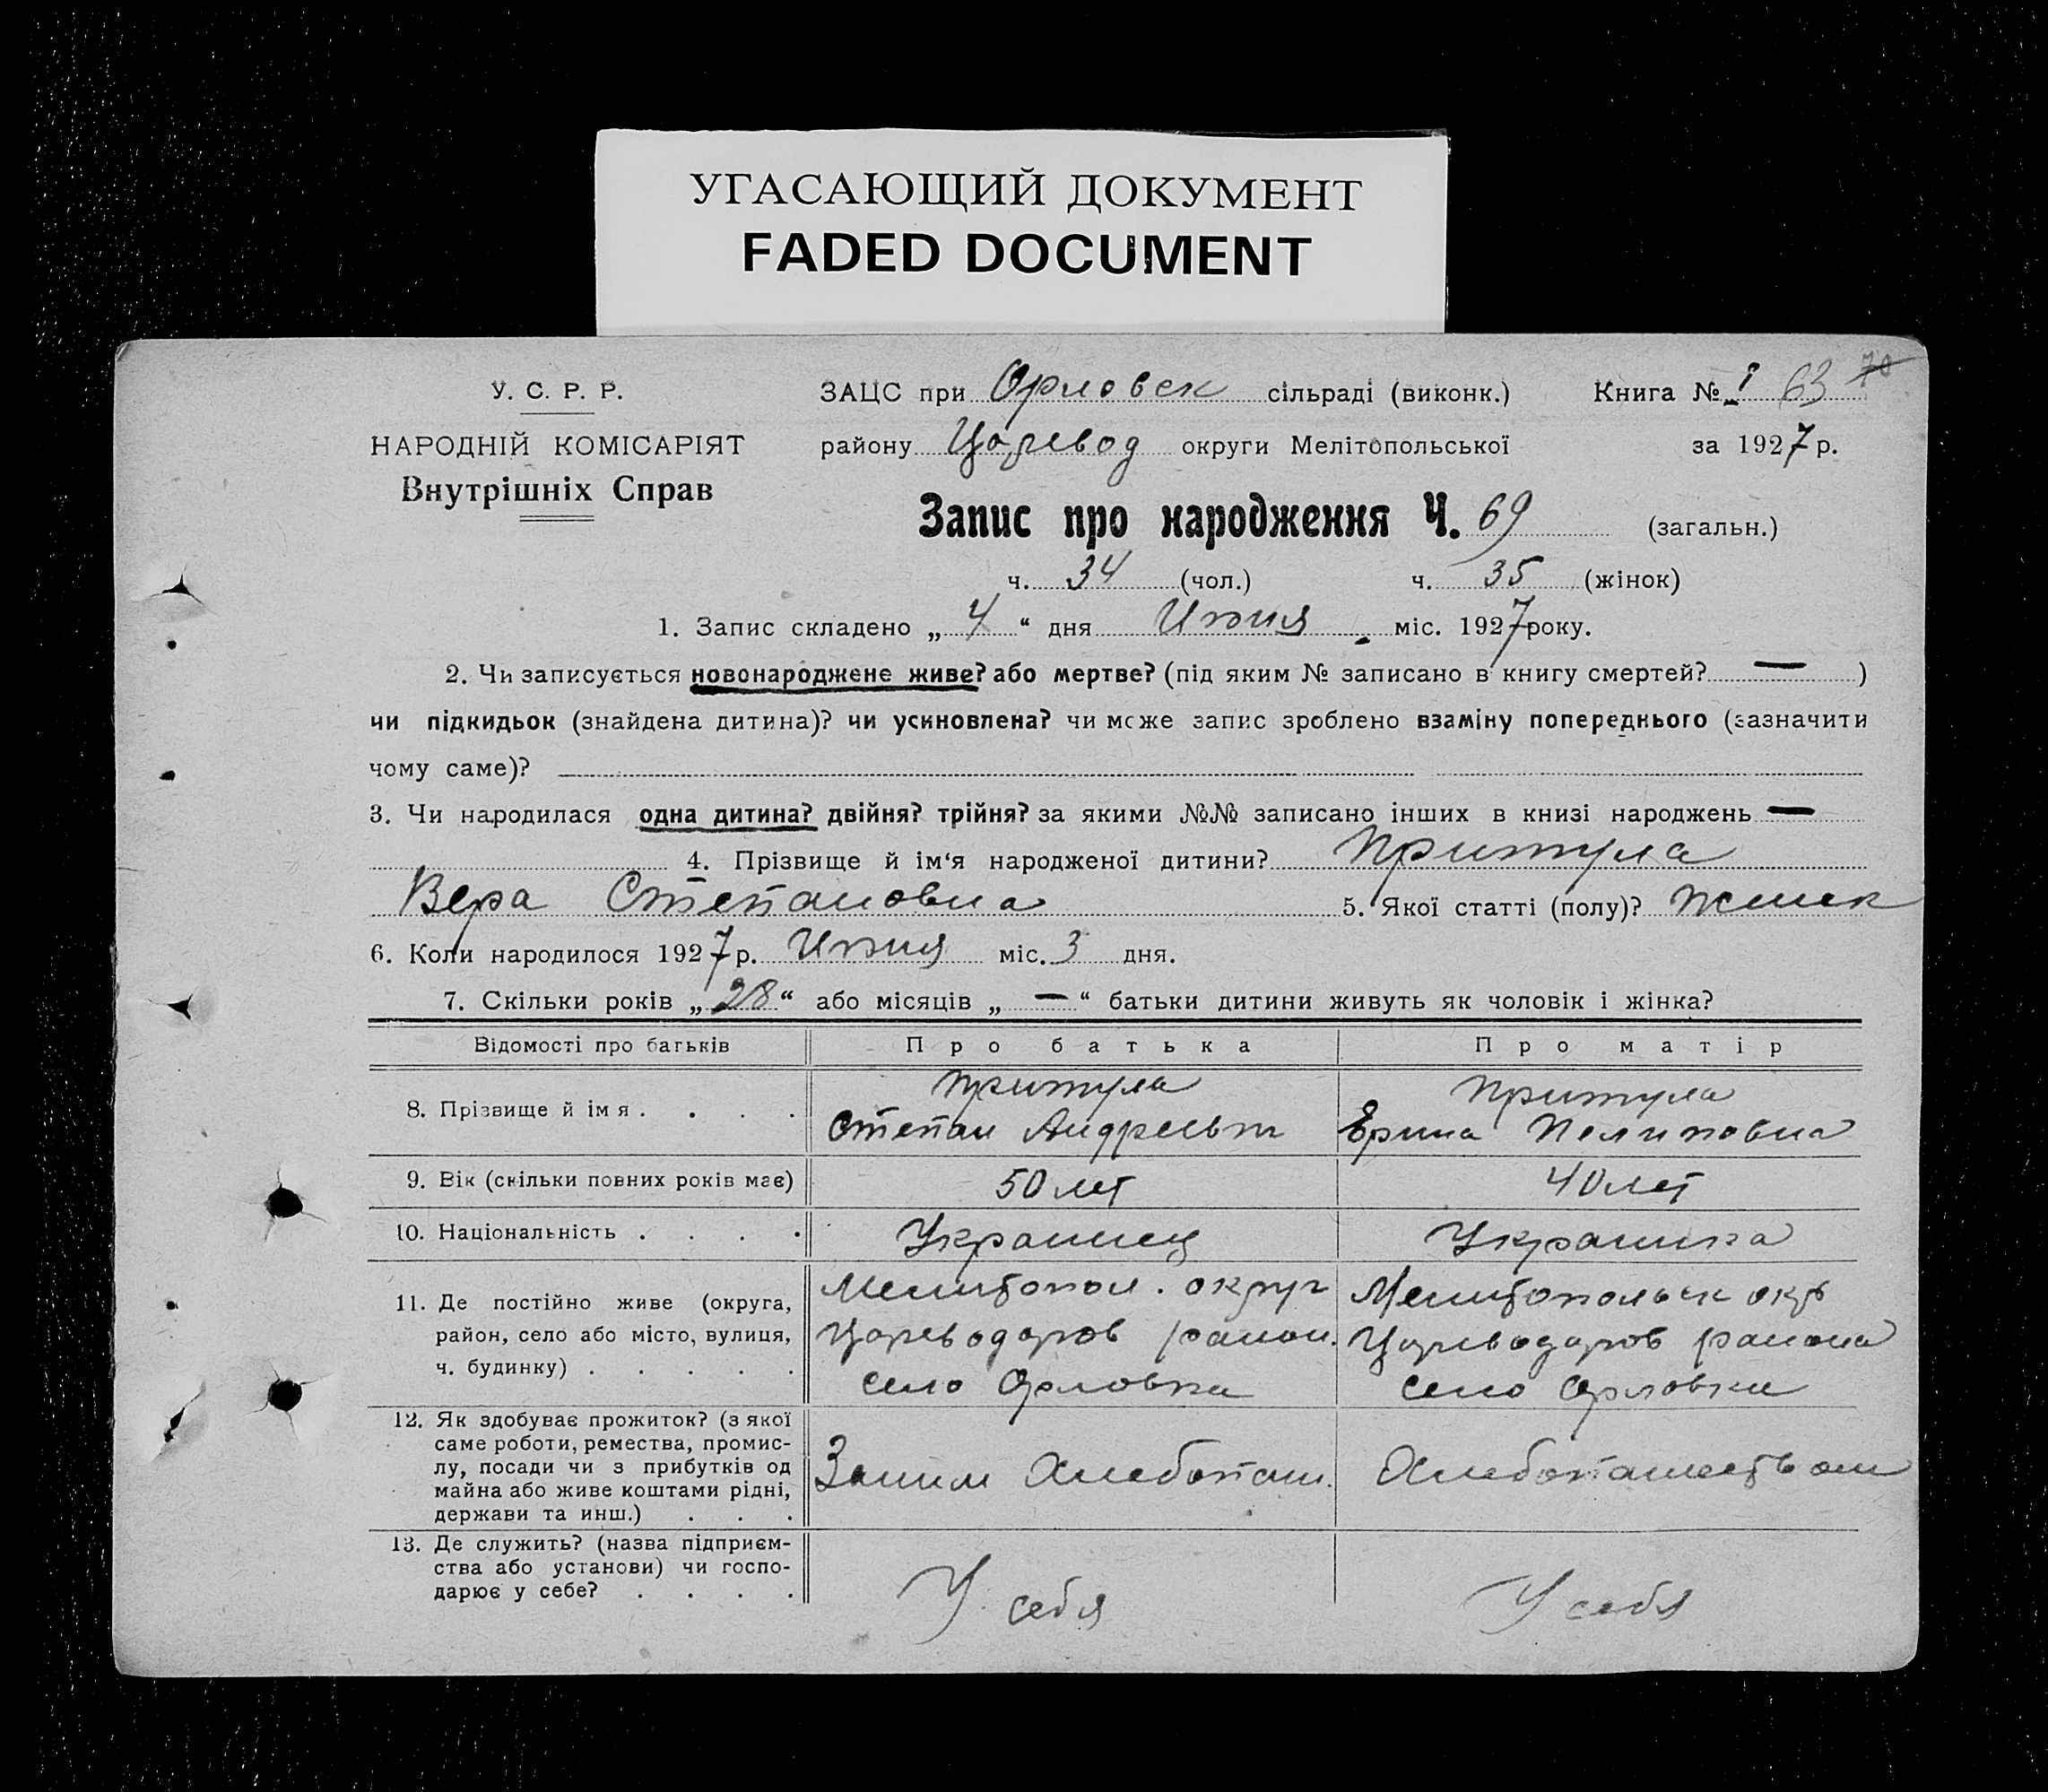 УГАСАЮЩИЙ ДОКУМЕНТ
FADED DOCUMENT
У. С. Р. Р.
НАРОДНІЙ КОМІСАРІЯТ
Внутрішніх Справ
ЗАЦС при Орловск сільраді (виконк.) Книга № I 63 70
району Царевод округи Мелітопольської за 1927 р.
Запис про народження Ч. 69 (загальн.)
ч. 34 (чол.) ч. 35 (жінок)
1. Запис складено „ 4 “ дня Июня міс. 1927 року.
2. Чи записується новонароджене живе? або мертве? (під яким № записано в книгу смертей? — )
чи підкидьок (знайдена дитина)? чи усиновлена? чи може запис зроблено взаміну попереднього (зазначити
чому саме)?
3. Чи народилася одна дитина? двійня? трійня? за якими №№ записано інших в книзі народжень —
4. Прізвище й ім‘я народженої дитини? Притула
Вера Степановна 5. Якої статті (полу)? женск
6. Коли народилося 1927 р. Июня міс. 3 дня.
7. Скільки років „ 28 “ або місяців „ — “ батьки дитини живуть як чоловік і жінка?
Відомості про батьків Про батька Про матір
8. Прізвище й імя . . . . Притула Притула
Степан Андреевич Ерина Пелиповна
9. Вік (скільки повних років має) 50 лет 40 лет
10. Національність . . . . Украинец Украинка
11. Де постійно живе (округа, район, село або місто, вулиця, ч. будинку) . . . . . Мелитопол. округ Мелитопольск окр
Цареводаров район. Цареводаров района
село Орловка село Орловки
12. Як здобуває прожиток? (з якої
саме роботи, ремества, промис-
лу, посади чи з прибутків од
майна або живе коштами рідні,
держави та инш.) . . .
Заним Хлебопаш. Хлебопашеством
13. Де служить? (назва підприєм-
ства або установи) чи госпо-
дарює у себе? . . . .
У себя У себя